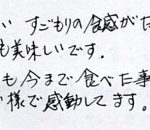 い すごもりの食感が
も美味しいです。
も今まで食べた事
い様で感動してます。